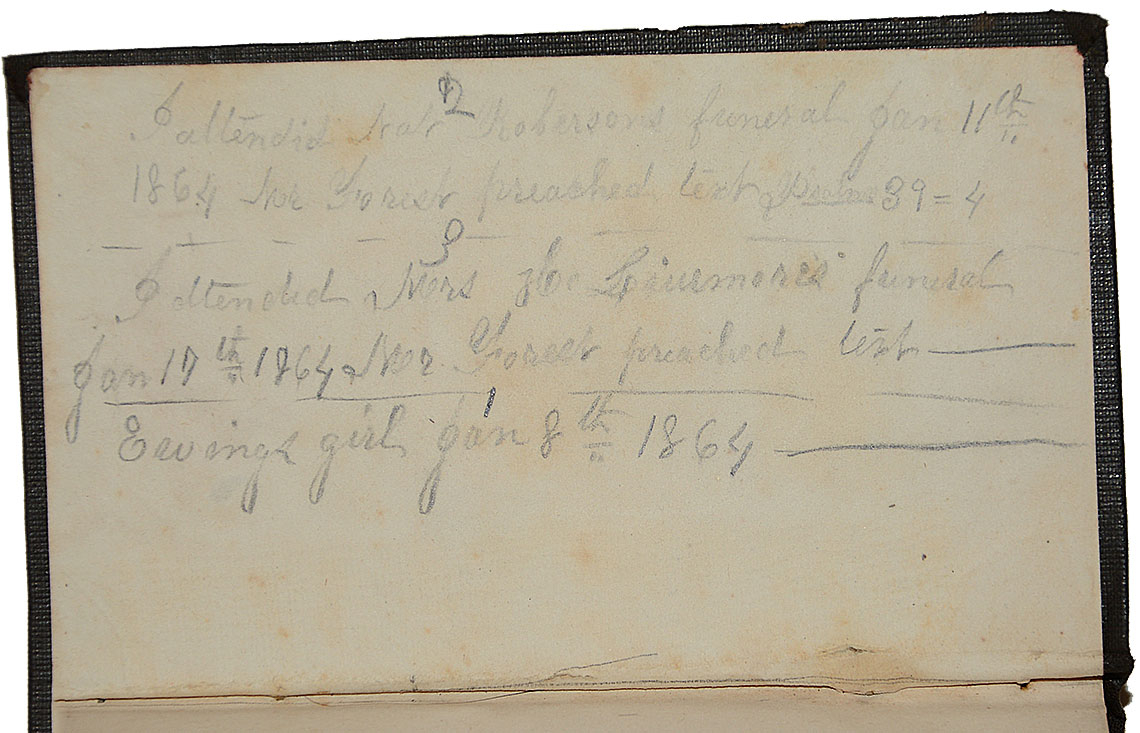 2
I attendid Nat Robersons funeral Jan 11th
1864 Mr Forest preached text Psalms 39=4
3
I attended Mrs Livermores funeral
Jan 17th 1864 Mr Forest preached text
1
Ewings girl Jan 8th 1864